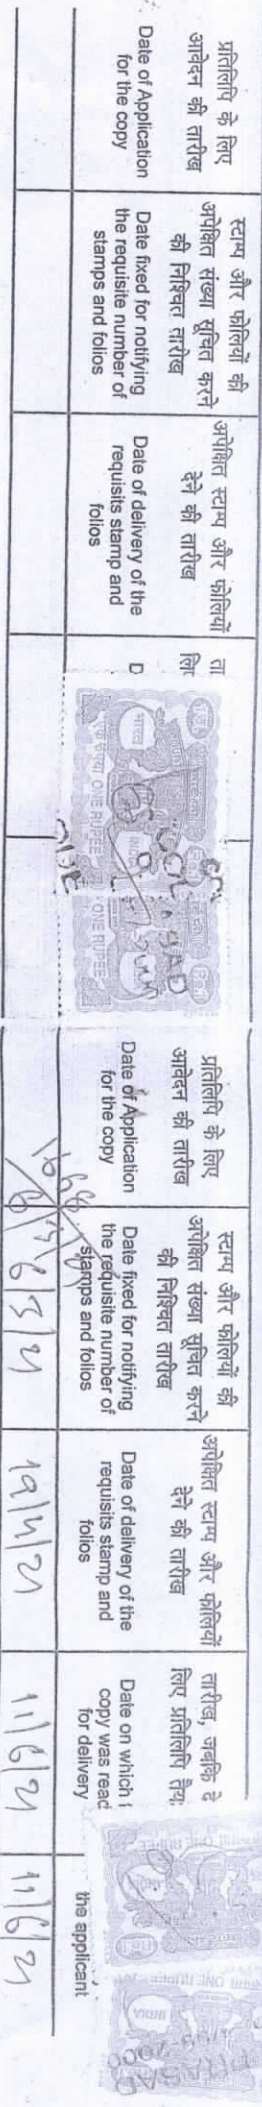 प्रतिलिपि के लिए
आवेदन की तारीख
Date of Application
for the copy
स्टाम्प और फोलियों की
अपेक्षित संख्या सूचित करने
की निश्चित तारीख
Date fixed for notifying
the requisite number of
stamps and folios
अपेक्षित स्टाम्प और फोलियों
देने की तारीख
Date of delivery of the
requisits stamp and
folios
ता
लि
D
भारत
INDIA
एक रुपया ONE RUPEE
ONE RUPEE
प्रतिलिपि के लिए
आवेदन की तारीख
Date of Application
for the copy
स्टाम्प और फोलियों की
अपेक्षित संख्या सूचित करने
की निश्चित तारीख
Date fixed for notifying
the requisite number of
stamps and folios
6/5/21
अपेक्षित स्टाम्प और फोलियों
देने की तारीख
Date of delivery of the
requisits stamp and
folios
19/4/21
तारीख, जबकि दे
लिए प्रतिलिपि तैय
Date on which
copy was read
for delivery
11/6/21
the applicant
11/6/21
ONE RUPEE
INDIA
2000
PRASAD